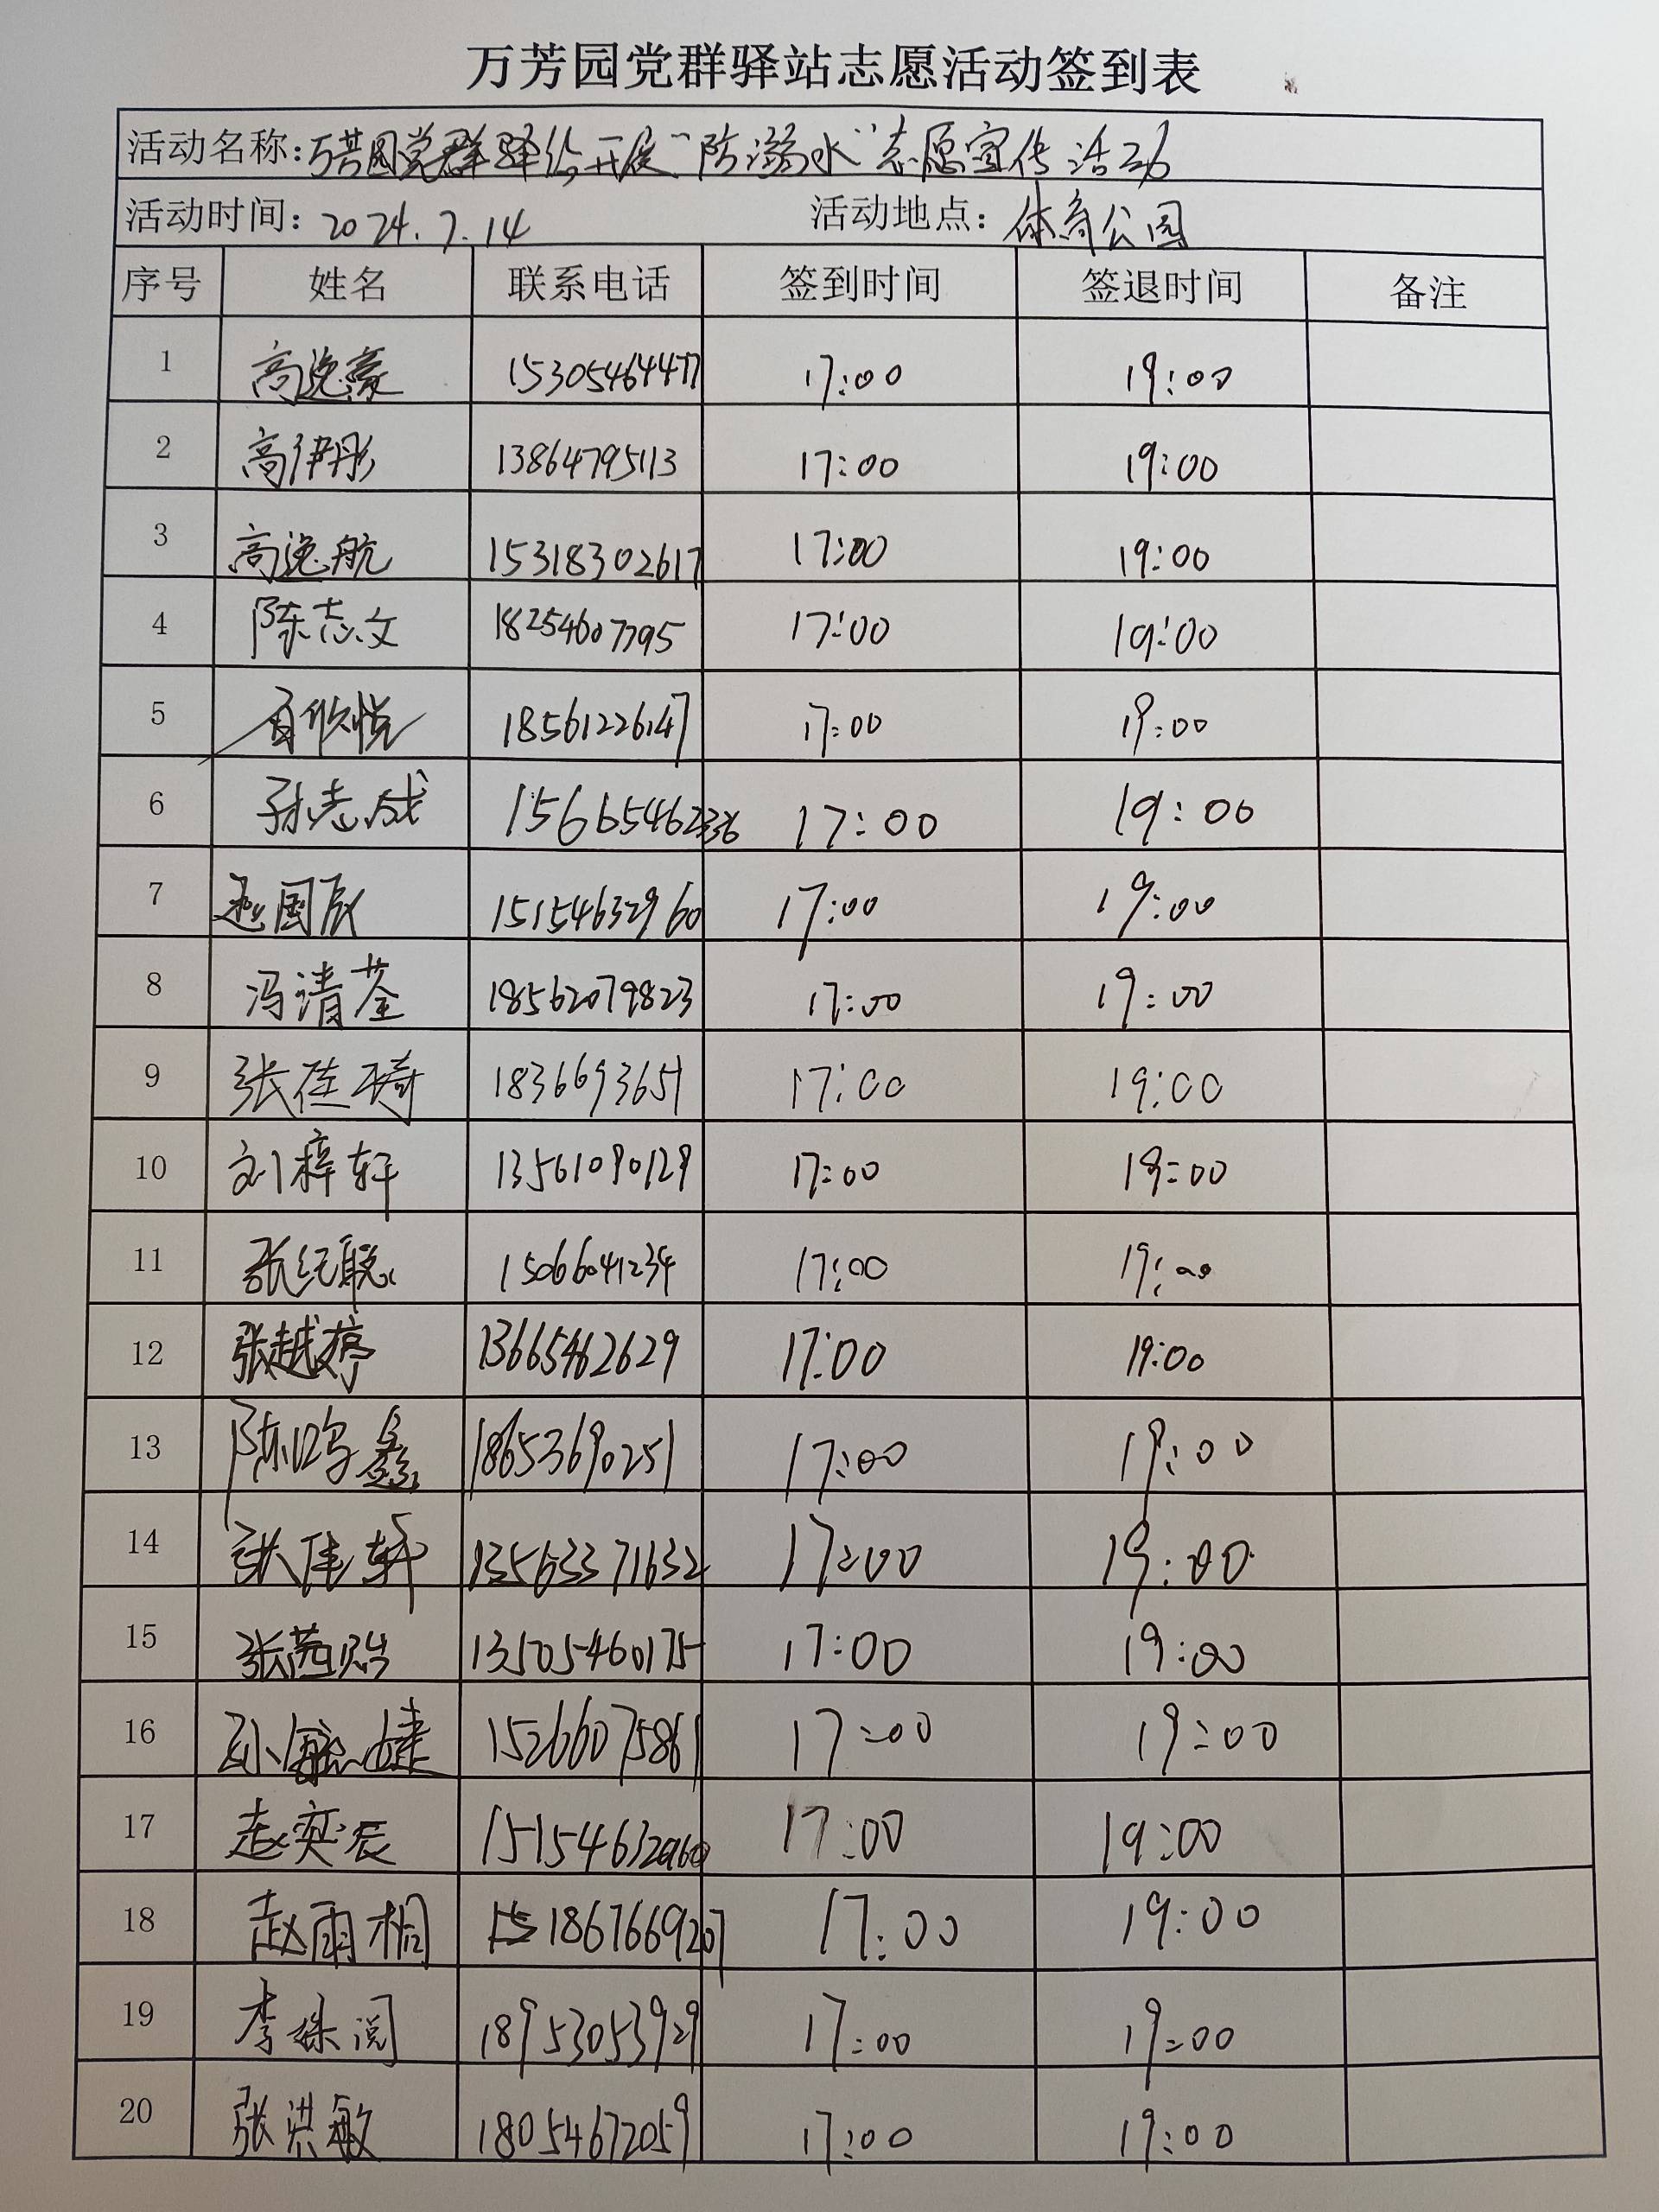 万芳园党群驿站志愿活动签到表
活动名称:万芳园党群驿站开展“防溺水”志愿宣传活动
活动时间: 2024.7.14 活动地点: 体育公园
序号 姓名 联系电话 签到时间 签退时间 备注
1 高逸豪 15305464477 17:00 19:00
2 高伊彤 13864795113 17:00 19:00
3 高逸航 15318302617 17:00 19:00
4 陈志文 18254607795 17:00 19:00
5 欣悦 18561226147 17:00 19:00
6 孙志成 15665462336 17:00 19:00
7 赵国辰 15154632960 17:00 19:00
8 冯清荃 18562079823 17:00 19:00
9 张佳琦 1836693651 17:00 19:00
10 刘梓轩 13561090129 17:00 19:00
11 张纪聪 15066041234 17:00 19:00
12 张越婷 13665462629 17:00 19:00
13 陈鸣鑫 18653690251 17:00 19:00
14 张佳轩 13563371632 17:00 19:00
15 张茜贻 13505460175 17:00 19:00
16 孙婕 15266075861 17:00 19:00
17 赵奕辰 15154632960 17:00 19:00
18 赵雨桐 18676669207 17:00 19:00
19 李姝阅 18953053929 17:00 19:00
20 张洪敏 18054672059 17:00 19:00